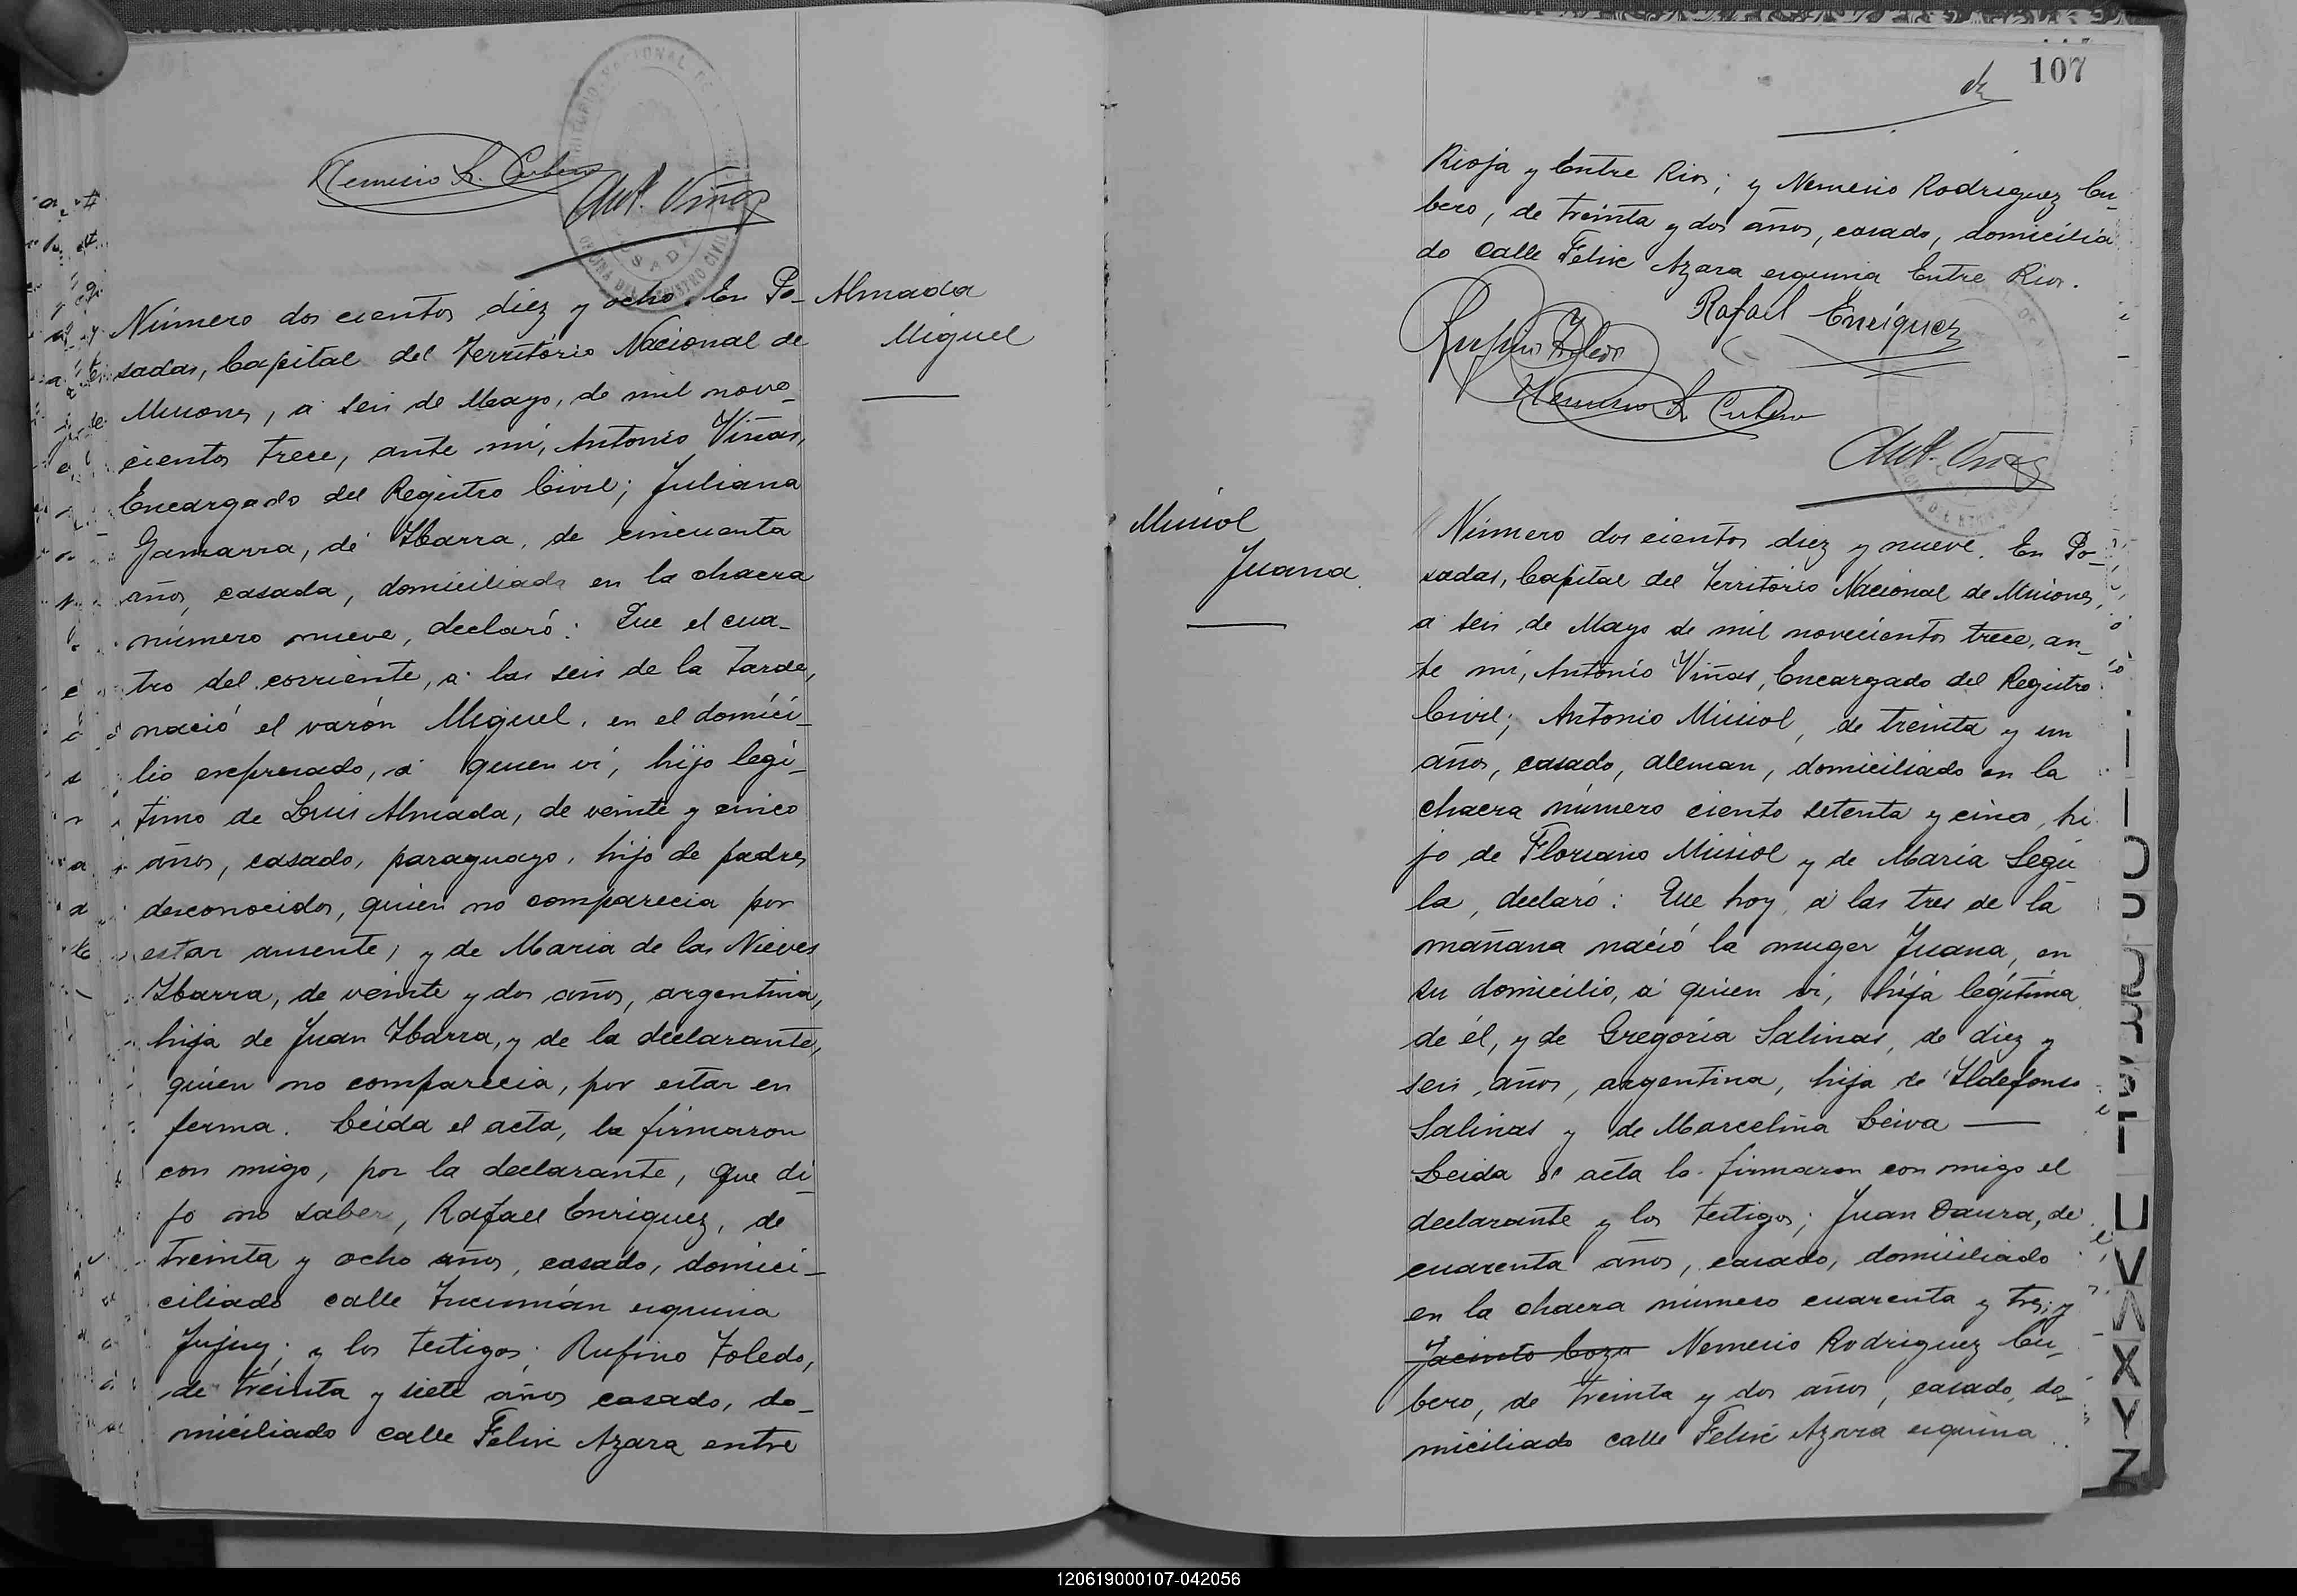 Nemesio R. Cubero
Ant. Viñas
Número dos cientos diez y ocho. En Po-
sadas, Capital del Territorio Nacional de
Misiones, a seis de Mayo, de mil nove-
cientos trece, ante mi, Antonio Viñas,
Encargado del Registro Civil; Juliana
Gamarra, de Ibarra, de cincuenta
años, casada, domiciliada en la chacra
número nueve, declaró: Que el cua-
tro del corriente, a las seis de la tarde,
nació el varón Miguel, en el domici-
lio expresado, a quien vi, hijo legi-
timo de Luis Almada, de veinte y cinco
años, casado, paraguayo, hijo de padres
desconocidos, quien no comparecia por
estar ausente, y de Maria de las Nieves
Ibarra, de veinte y dos años, argentina,
hija de Juan Ibarra, y de la declarante,
quien no comparecia, por estar en
ferma. Leida el acta, la firmaron
con migo, por la declarante, que di-
jo no saber, Rafael Enriquez, de
treinta y ocho años, casado, domici-
ciliado calle Tucumán esquina
Jujuy; y los testigos; Rufino Toledo,
de treinta y siete años casado, do-
miciliado calle Felix Azara entre
Almada
Miguel
107
Rioja y Entre Rios; y Nemesio Rodriguez Cu-
bero, de treinta y dos años, casado, domicilia
do calle Felix Azara esquina Entre Rios.
Rafael Enríquez
Rufino Toledo
Nemesio R. Cubero
Ant. Viñas
Musiol
Juana
Número dos cientos diez y nueve. En Po-
sadas, Capital del Territorio Nacional de Misiones,
a seis de Mayo de mil novecientos trece, an-
te mi, Antonio Viñas, Encargado del Registro
Civil; Antonio Musiol, de treinta y un
años, casado, aleman, domiciliado en la
chacra número ciento setenta y cinco, hi
jo de Floriano Musiol y de Maria Segu
la, declaró: Que hoy, a las tres de la
mañana nació la muger Juana, en
su domicilio, a quien vi, hija legítima
de él, y de Gregoria Salinas, de diez y
seis años, argentina, hija de Ildefonso
Salinas y de Marcelina Leiva —
Leida el acta la firmaron con migo el
declarante y los testigos; Juan Daura, de
cuarenta años, casado, domiciliado
en la chacra número cuarenta y tres; y
Jacinto Coza Nemesio Rodriguez Cu-
bero, de treinta y dos años, casado, do-
miciliado calle Felix Azara esquina
U
V
X
Y
Z
120619000107-042056